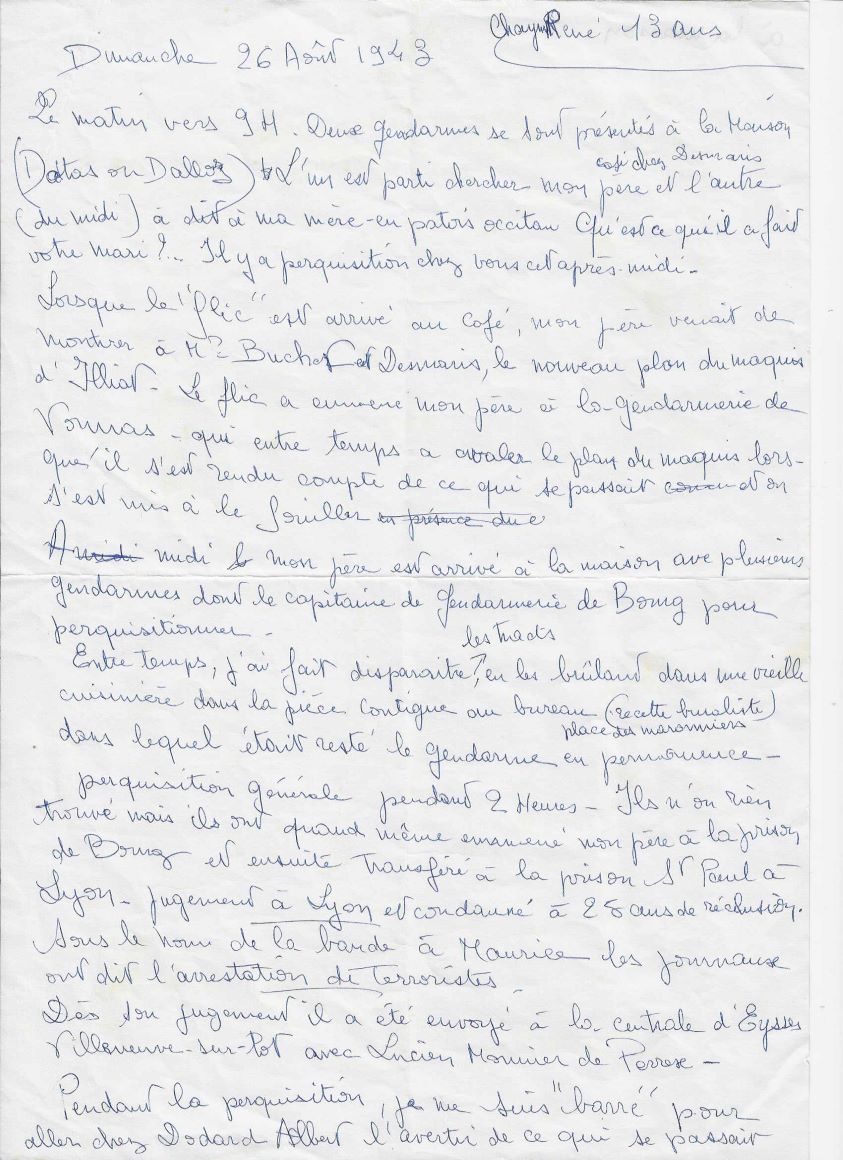 René 13 ans
Dimanche 26 Août 1943
Le matin vers 9H. Deux gendarmes se sont présentés à la Maison
café chez Desmaris
(Dattas ou Dalloz) L'un est parti chercher mon père et l'autre
(du midi) à dit à ma mère en patois occitan Qu'est ce qu'il a fait
votre mari?.. Il y a perquisition chez vous cet après-midi -
Lorsque le "flic" est arrivé au café, mon père venait de
montrer à Mr et Desmaris, le nouveau plan du maquis
d'Illiat - Le flic a emmené mon père à la gendarmerie de
Vonnas - qui entre temps a avaler le plan du maquis lors-
qu'il s'est rendu compte de ce qui se passait et on
s'est mis à le fouiller en présence du
A midi midi mon père est arrivé à la maison ave plusieurs
gendarmes dont le capitaine de Gendarmerie de Bourg pour
perquisitionner -
les tracts
Entre temps, j'ai fait disparaitre, en les brûlant dans une vieille
cuisinière dans la pièce contigue au bureau (recette buraliste)
place des marronniers
dans lequel était resté le gendarme en permanence -
perquisition générale pendant 2 Heures - Ils n'on rien
trouvé mais ils ont quand même emmené mon père à la prison
de Bourg et ensuite transféré à la prison St Paul à
Lyon - jugement à Lyon et condamné à 25 ans de réclusion.
Sous le nom de la bande à Maurice les journaux
ont dit l'arrestation de terroristes -
Dès son jugement il a été envoyé à la centrale d'Eysses
Villeneuve-sur-Lot avec Lucien Monnier de Perrex -
Pendant la perquisition, je me suis "barré" pour
aller chez Dodard Albert l'avertir de ce qui se passait